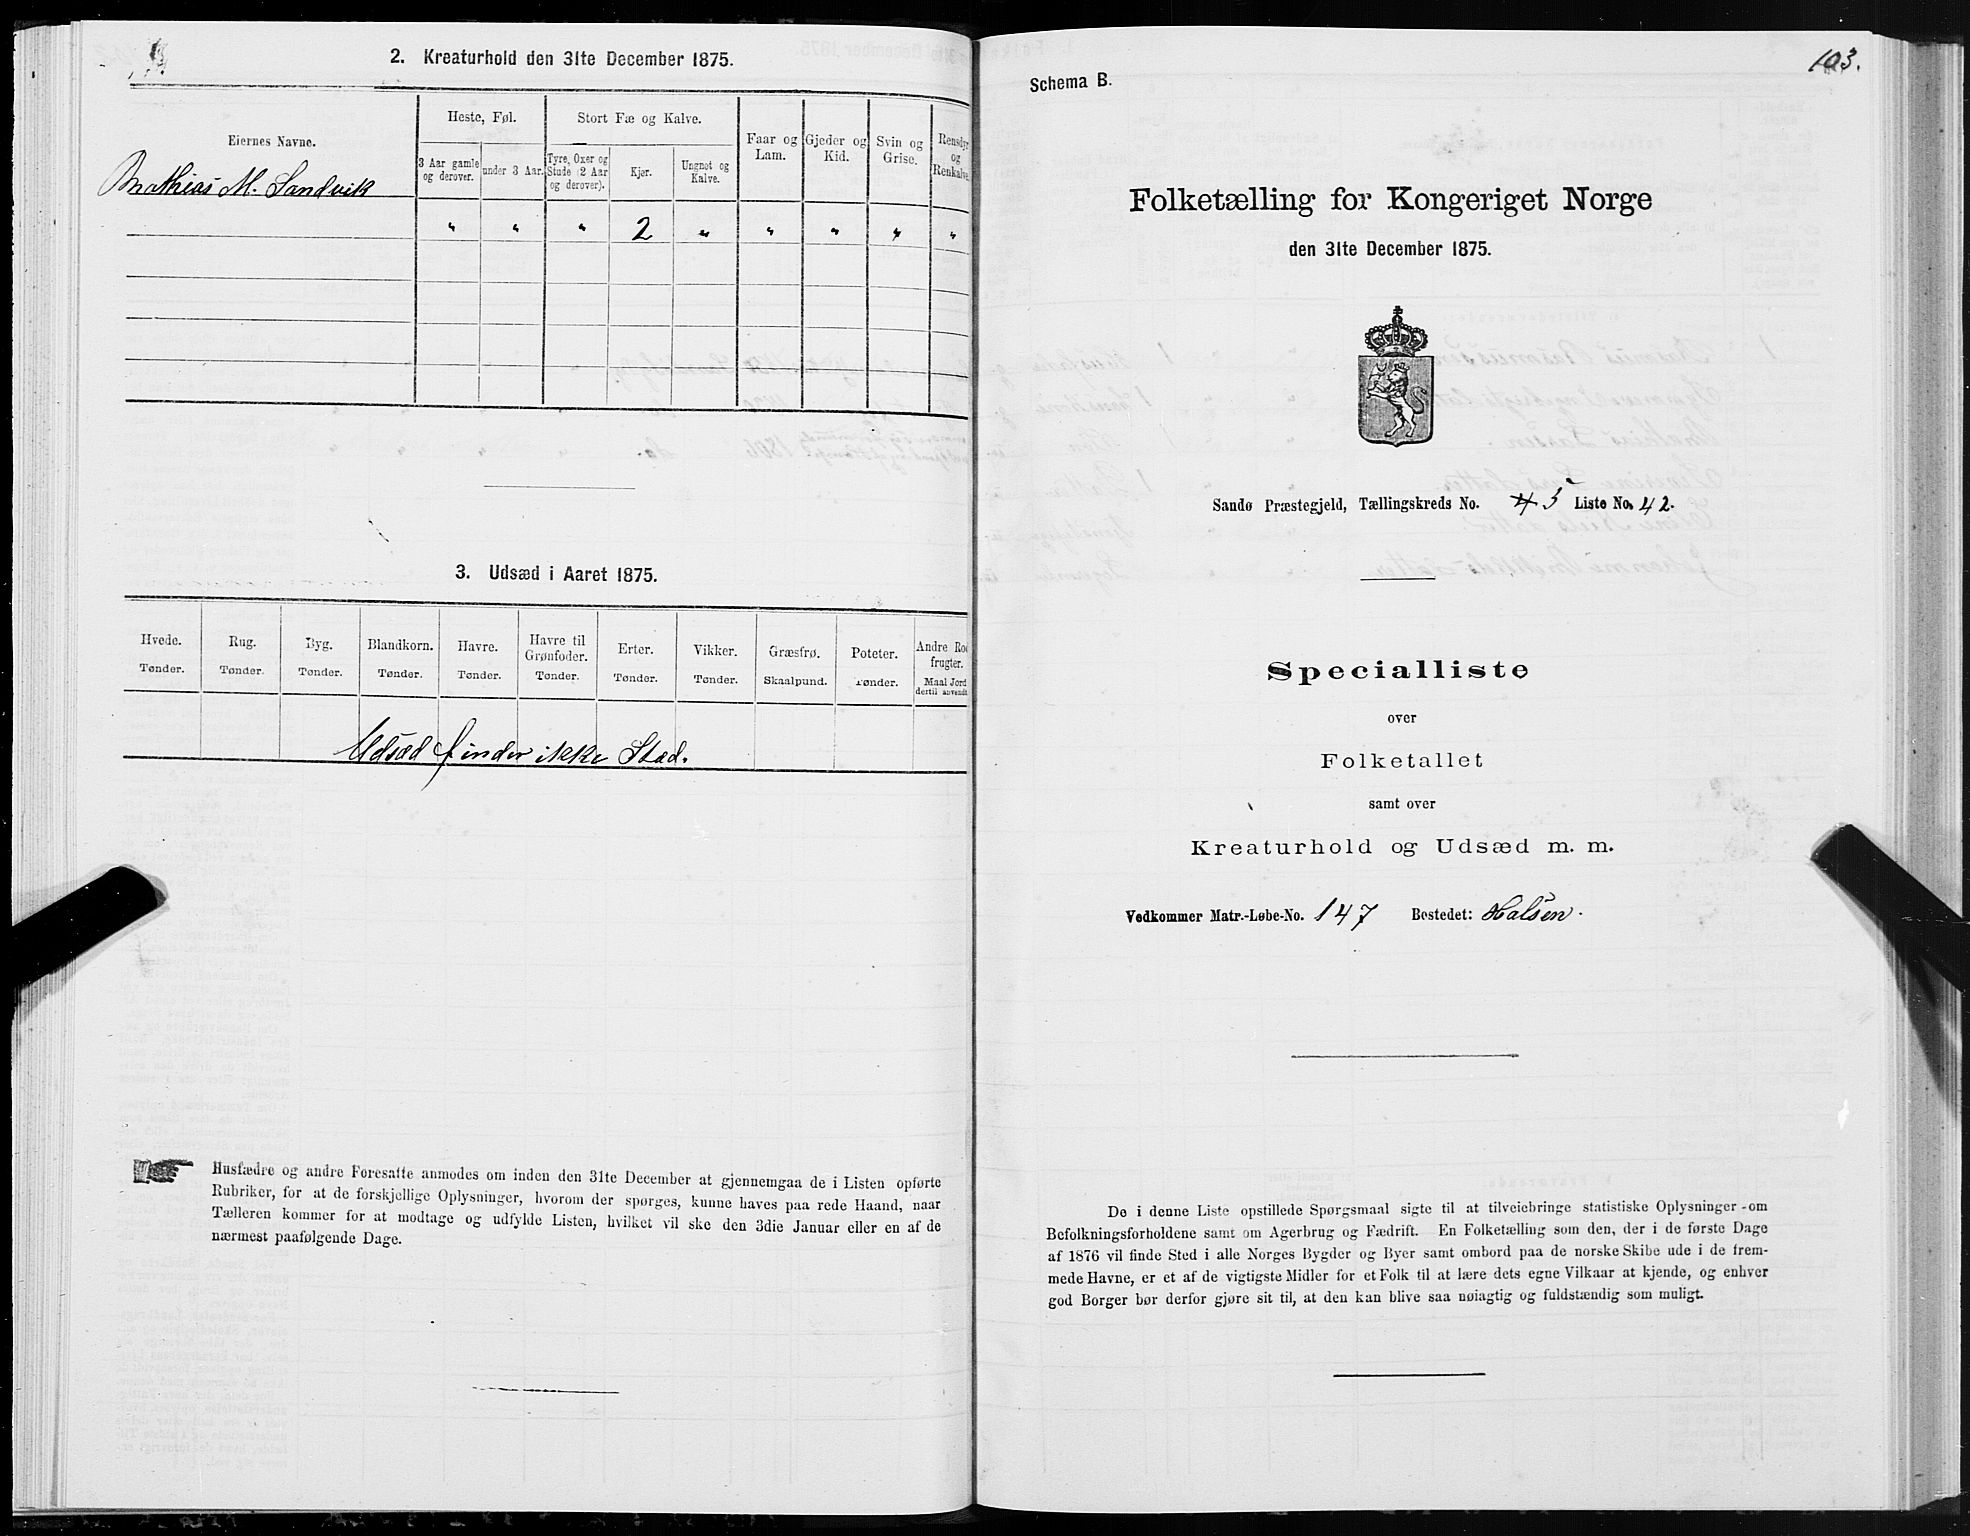 2. Kreaturhold den 31te December 1875.
Eiernes Navne.
Heste, Føl.
Stort Fæ og Kalve.
Faar og Lam.
Gjeder og Kid.
Svin og Grise.
Rensdyr og Renkalve.
3 Aar gamle og derover.
under 3 Aar.
Tyre, Oxer og Stude (2 Aar og derover).
Kjør.
Ungnøt og Kalve.
Mathias M. Sandvik
" " " 2 " " " " "
3. Udsæd i Aaret 1875.
Hvede. Rug. Byg. Blandkorn. Havre. Havre til Grønfoder. Erter. Vikker. Græsfrø. Poteter. Andre Rod frugter.
Tønder. Tønder. Tønder. Tønder. Tønder. Tønder. Tønder. Tønder. Skaalpund. Tønder. Maal Jord dertil anvendt
Udsæd finder ikke Sted.
Husfædre og andre Foresatte anmodes om inden den 31te December at gjennemgaa de i Listen opførte
Rubriker, for at de forskjellige Oplysninger, hvorom der spørges, kunne haves paa rede Haand, naar
Tælleren kommer for at modtage og udfylde Listen, hvilket vil ske den 3die Januar eller en af de
nærmest paafølgende Dage.
103.
Schema B.
Folketælling for Kongeriget Norge
den 31te December 1875.
Sandø Præstegjeld, Tællingskreds No. 4 5 Liste No. 42.
Specialliste
over
Folketallet
samt over
Kreaturhold og Udsæd m. m.
Vedkommer Matr.-Løbe-No. 147 Bostedet: Halsen.
De i denne Liste opstillede Spørgsmaal sigte til at tilveiebringe statistiske Oplysninger om
Befolkningsforholdene samt om Agerbrug og Fædrift. En Folketælling som den, der i de første Dage
af 1876 vil finde Sted i alle Norges Bygder og Byer samt ombord paa de norske Skibe ude i de frem-
mede Havne, er et af de vigtigste Midler for et Folk til at lære dets egne Vilkaar at kjende, og enhver
god Borger bør derfor gjøre sit til, at den kan blive saa nøiagtig og fuldstændig som muligt.